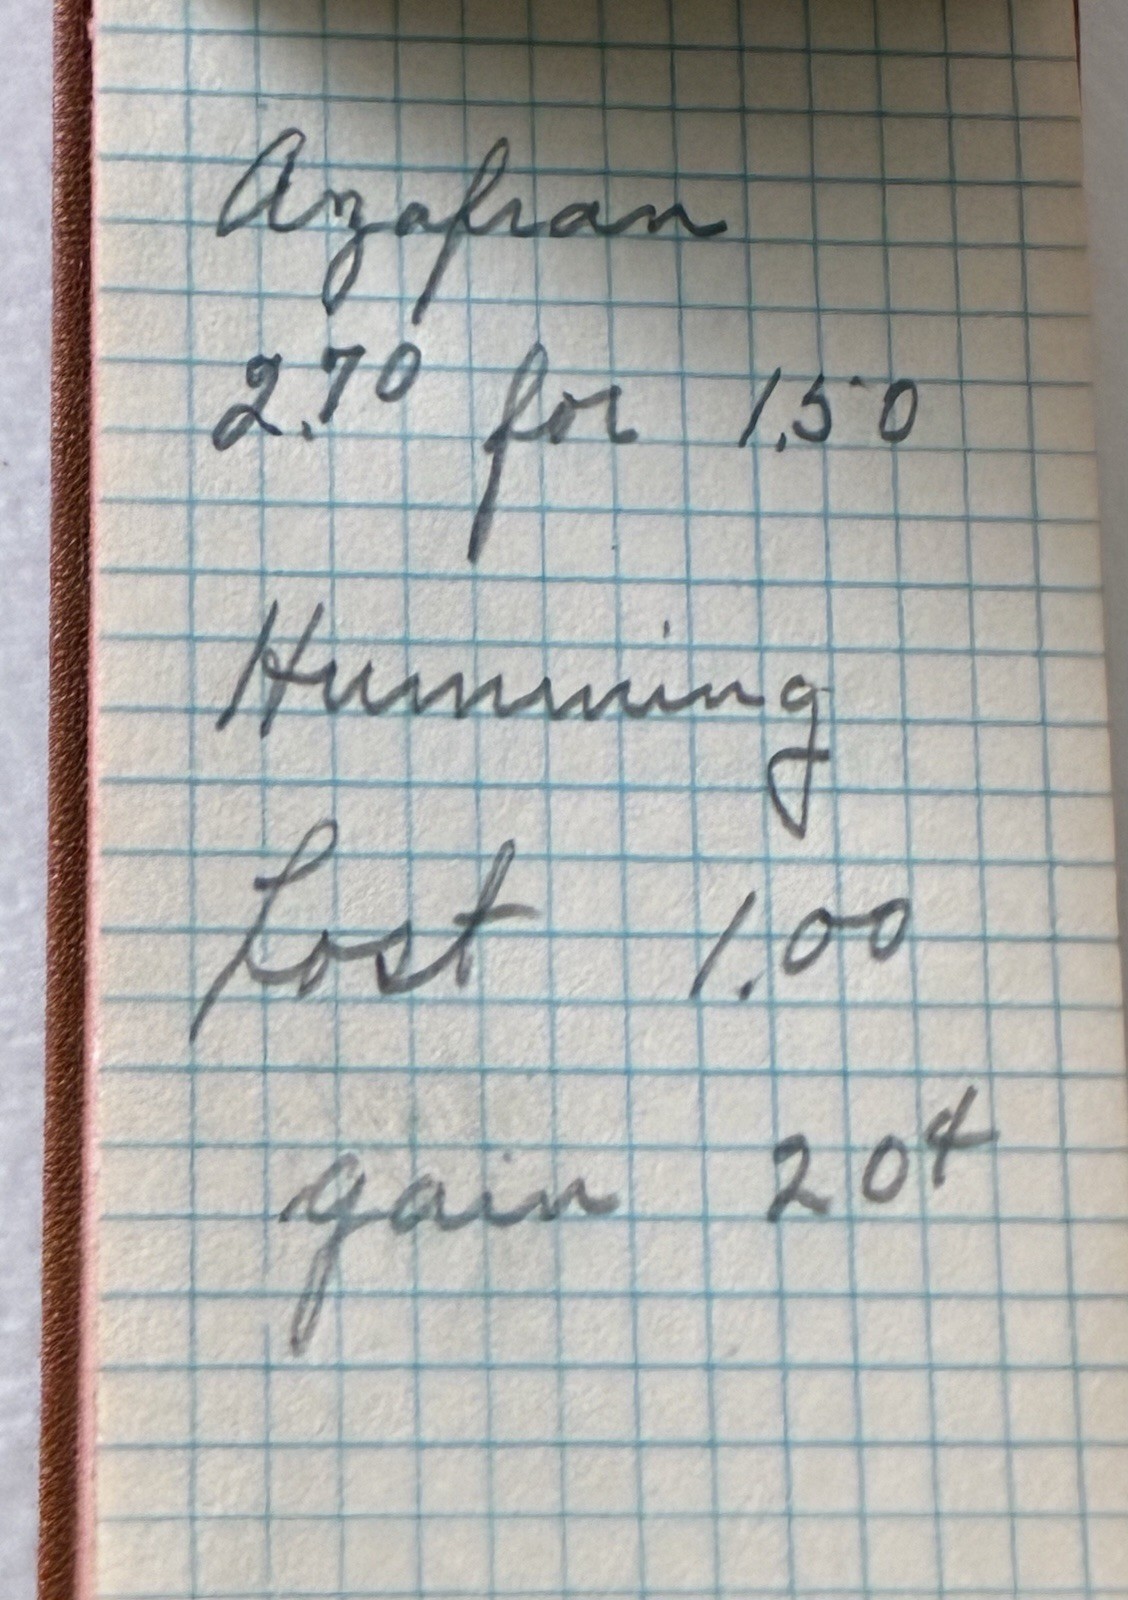 Azafran
2.70 for 1.50
Humming
Lost 1.00
gain 20¢